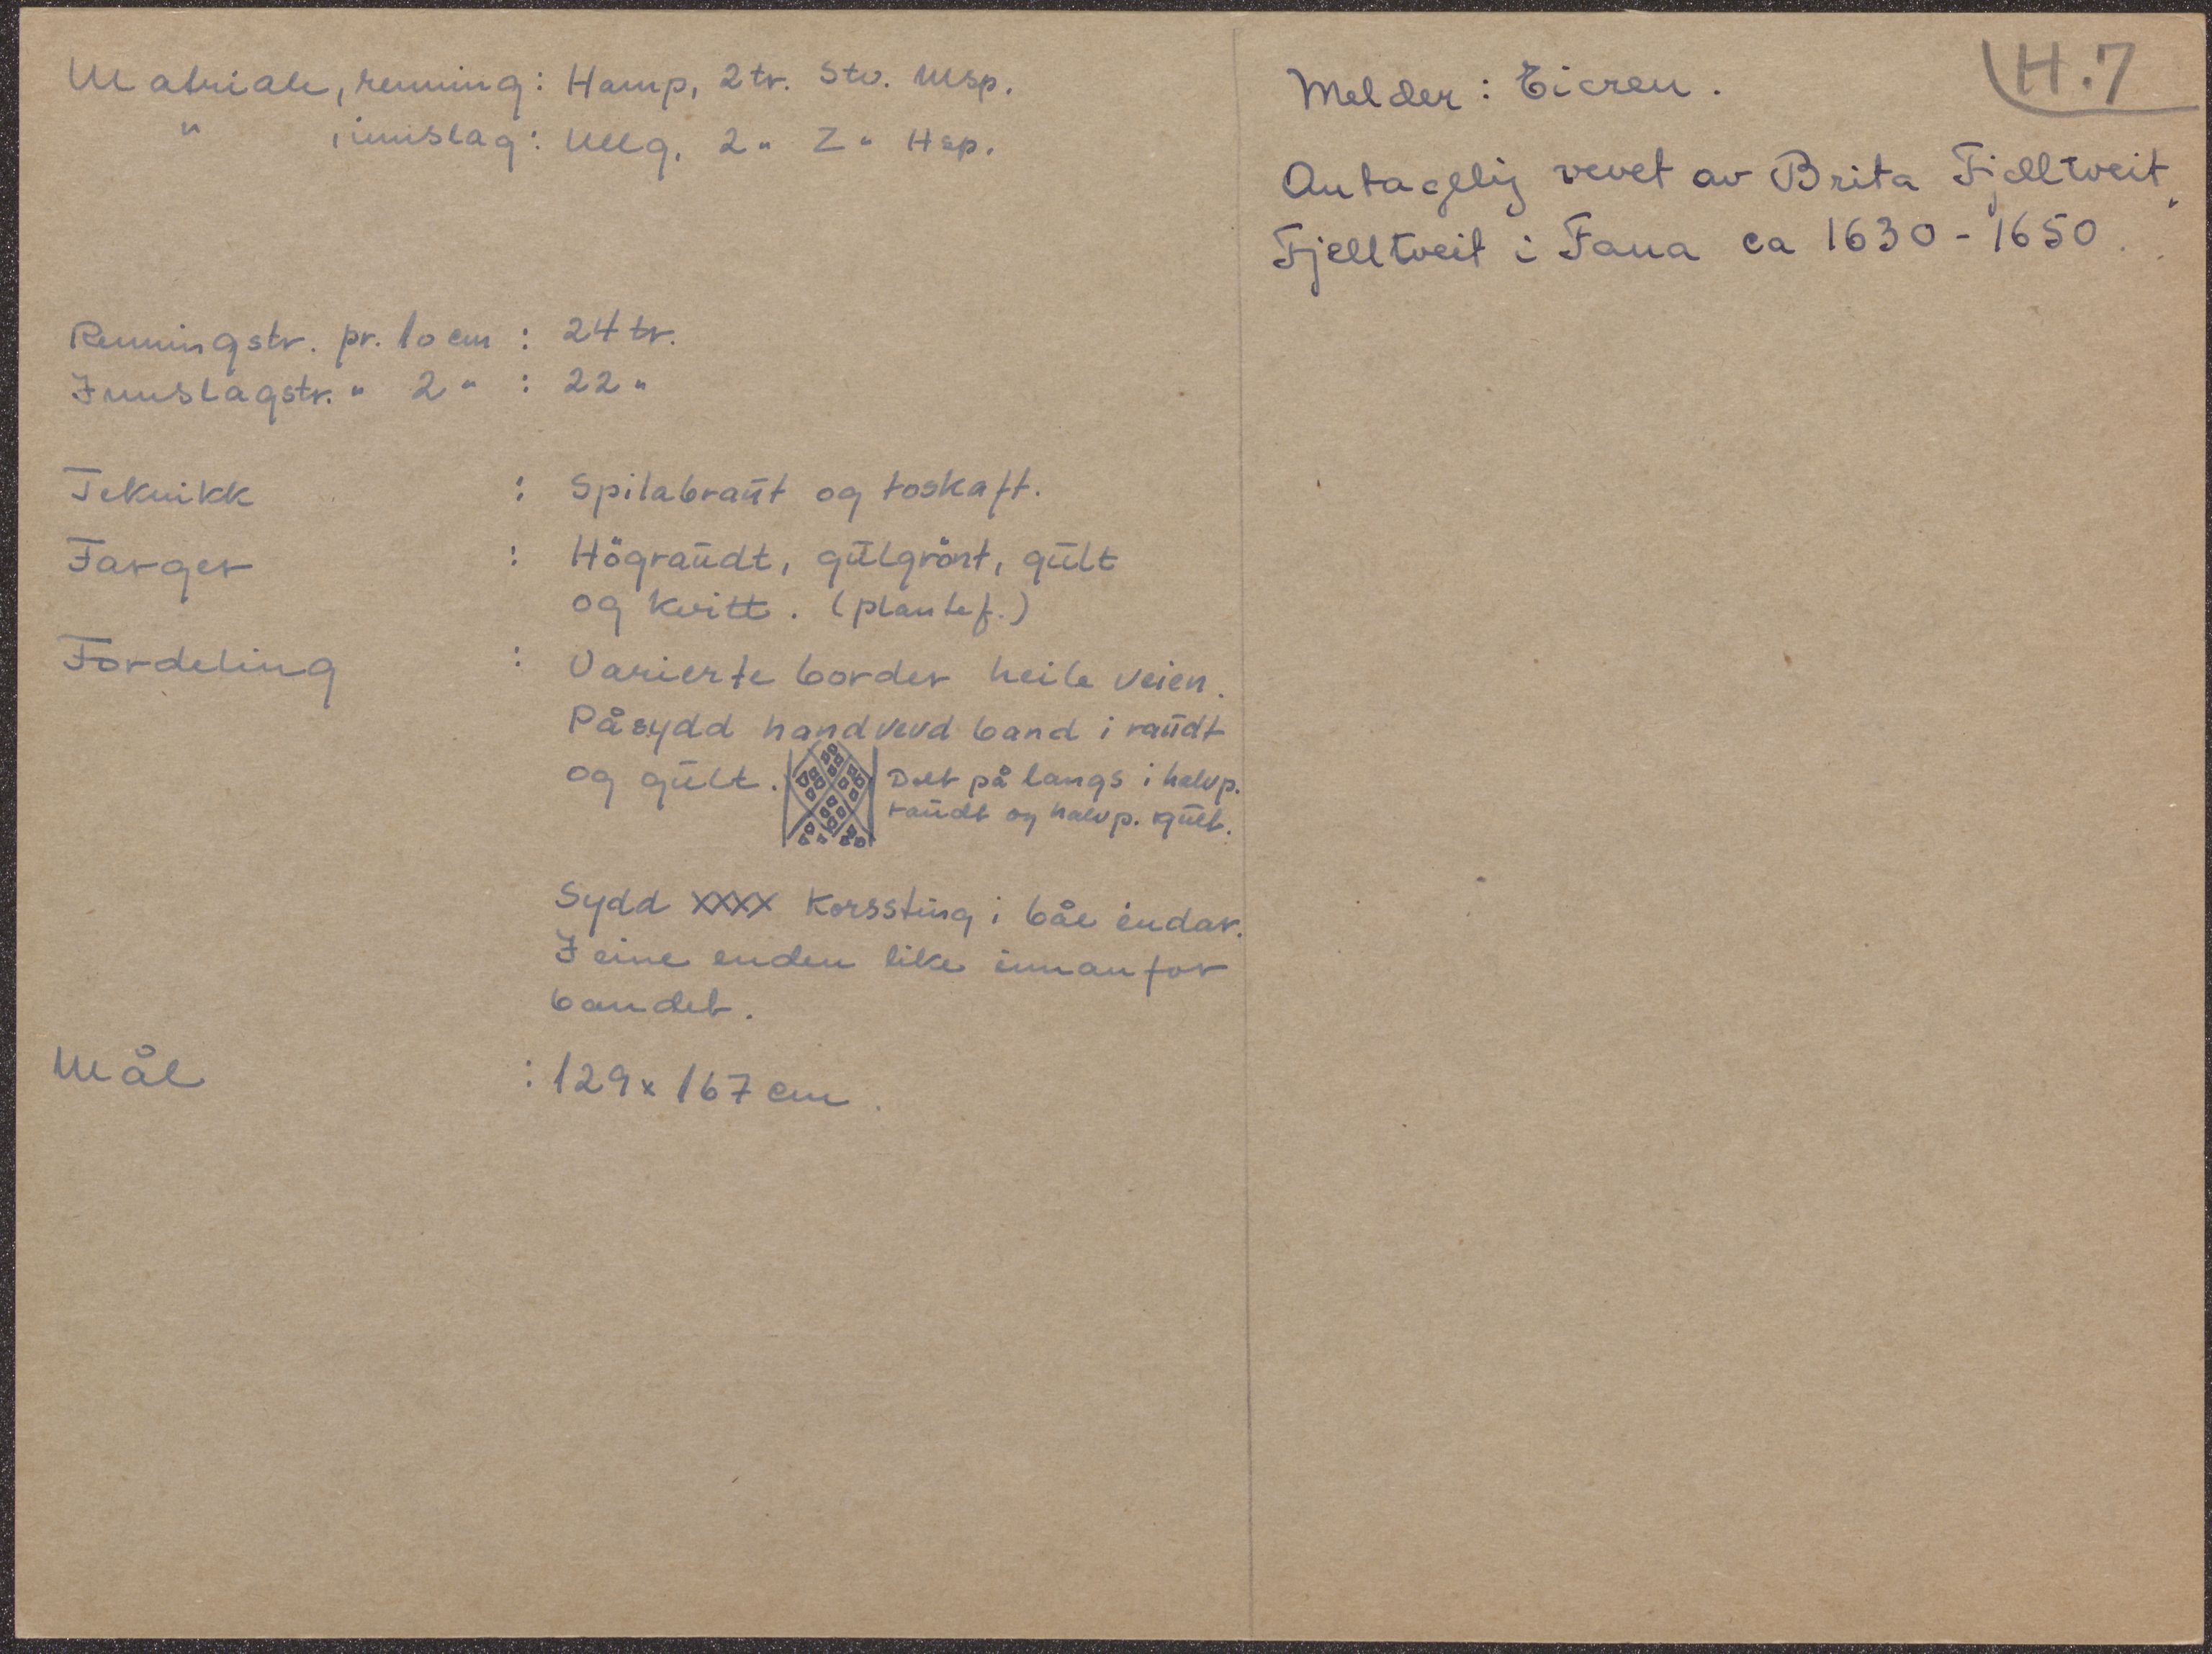 Matriale, renning: Hamp, 2tr. Stv. Msp.
" , innslag: Ullg. 2" Z" Hsp.
Renningstr. pr. 10 cm : 24 tr.
Innslagstr. " 2 " : 22 "
Teknikk : Spilabraūt og toskaft.
Farger : Högraūdt, gūlgrönt, gūlt
og kvitt. (plantef.)
Fordeling : Varierte border heile veien.
Påsydd handvevd band i raūdt
og gūlt. Delt på langs i halvp.
raūdt og halvp. gūlt.
Sydd XXXX Korssting i båe endar.
I eine enden like innanfor
bandet.
Mål : 129 x 167 cm.
H.7
Melder: Eieren.
Antagelig vevet av Brita Fjelltveit,
Fjelltveit i Fana ca 1630-1650.